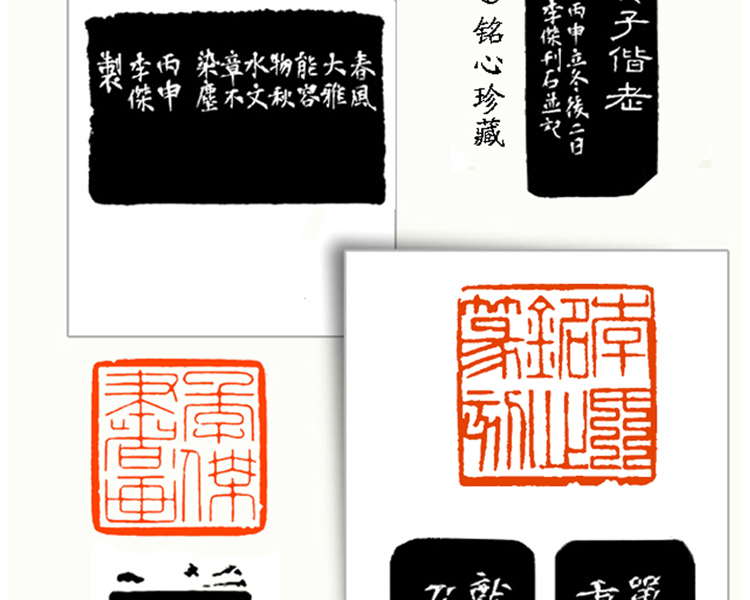 子偕老
丙申立冬後二日
李傑刊石並記
銘心珍藏
春風
大雅
能容
物秋
水文
章不
染塵
丙申
李傑
製
李傑
書畫
銘
篆刻